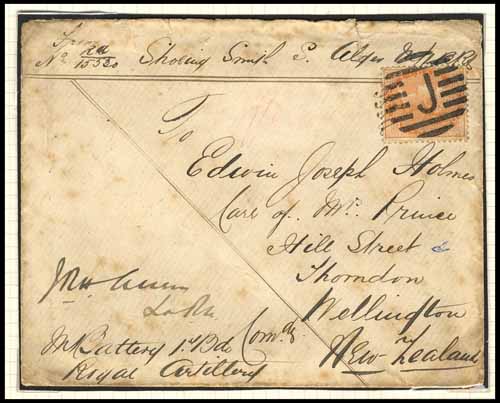 From
No 2a/15520 Shoeing Smith S. Alger
J
To
Edwin Joseph Holmes
Care of Mr. Prince
Hill Street
Thorndon
Wellington
New Zealand
Comdg
M Battery 1st Bde
Royal Artillery